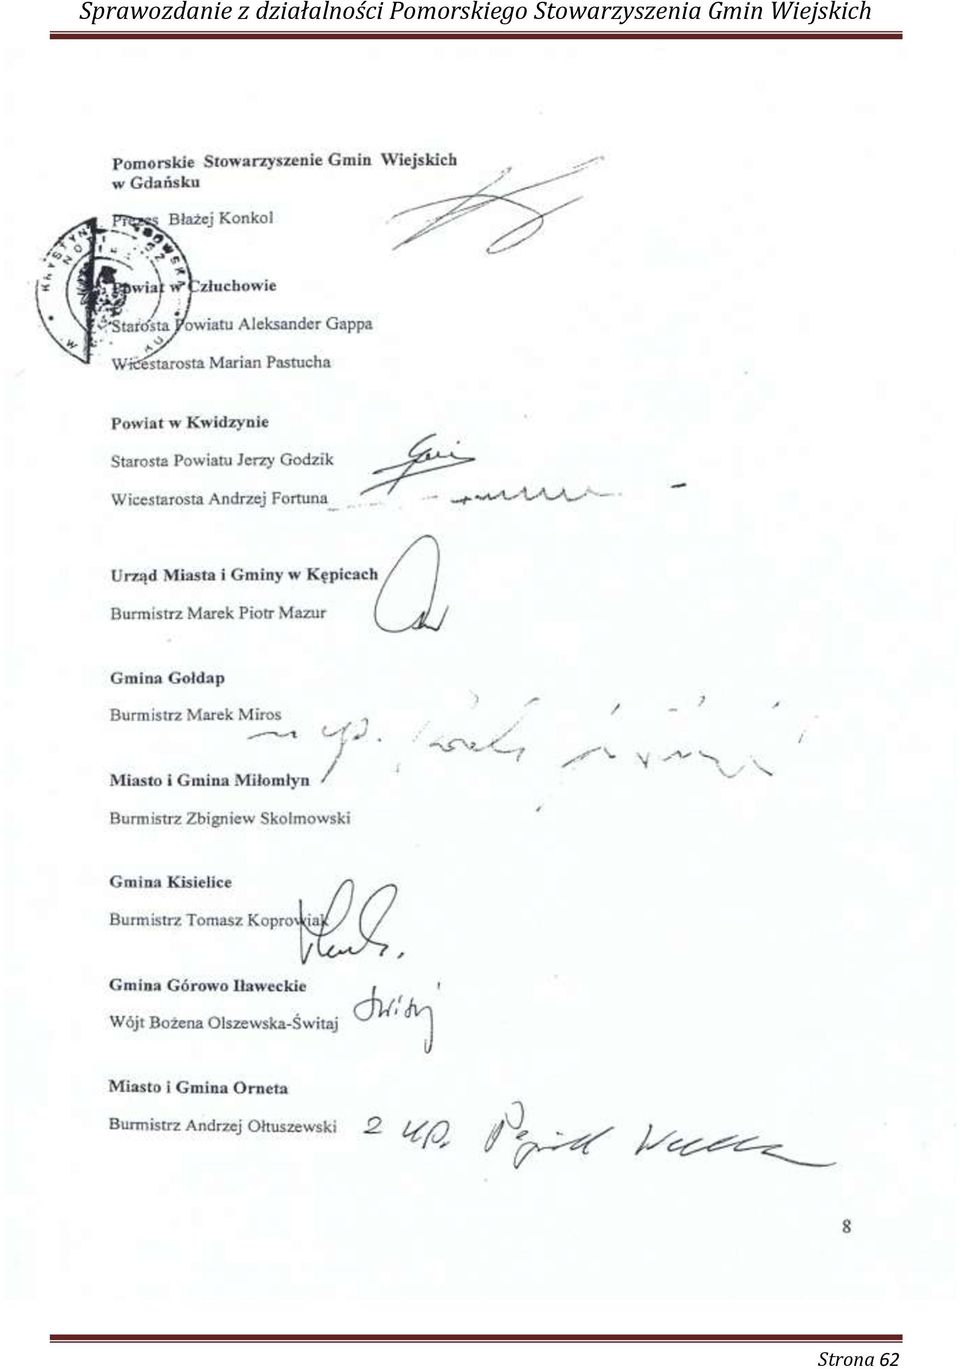 Sprawozdanie z działalności Pomorskiego Stowarzyszenia Gmin Wiejskich
Pomorskie Stowarzyszenie Gmin Wiejskich
w Gdańsku
Prezes Błażej Konkol
Powiat w Człuchowie
Starosta Powiatu Aleksander Gappa
Wicestarosta Marian Pastucha
Powiat w Kwidzynie
Starosta Powiatu Jerzy Godzik
Wicestarosta Andrzej Fortuna
Urząd Miasta i Gminy w Kępicach
Burmistrz Marek Piotr Mazur
Gmina Gołdap
Burmistrz Marek Miros
Miasto i Gmina Miłomłyn
Burmistrz Zbigniew Skolmowski
Gmina Kisielice
Burmistrz Tomasz Koprowiak
Gmina Górowo Iławeckie
Wójt Bożena Olszewska-Świtaj
Miasto i Gmina Orneta
Burmistrz Andrzej Ołtuszewski
8
Strona 62